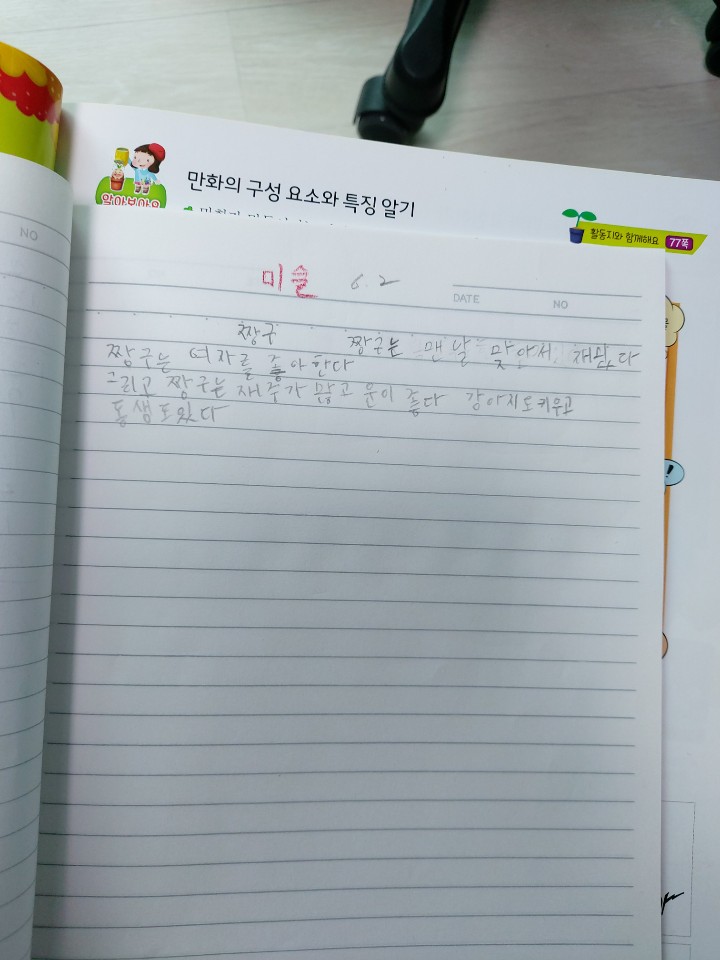 알아보아요
만화의 구성 요소와 특징 알기
활동지와 함께해요 77쪽
NO
미술 6.2
DATE NO
짱구
짱구는 여자를 좋아한다 짱구는 맨날 맞아서
그리고 짱구는 재주가 많고 운이 좋다 강아지도키우고
동생도있다
!